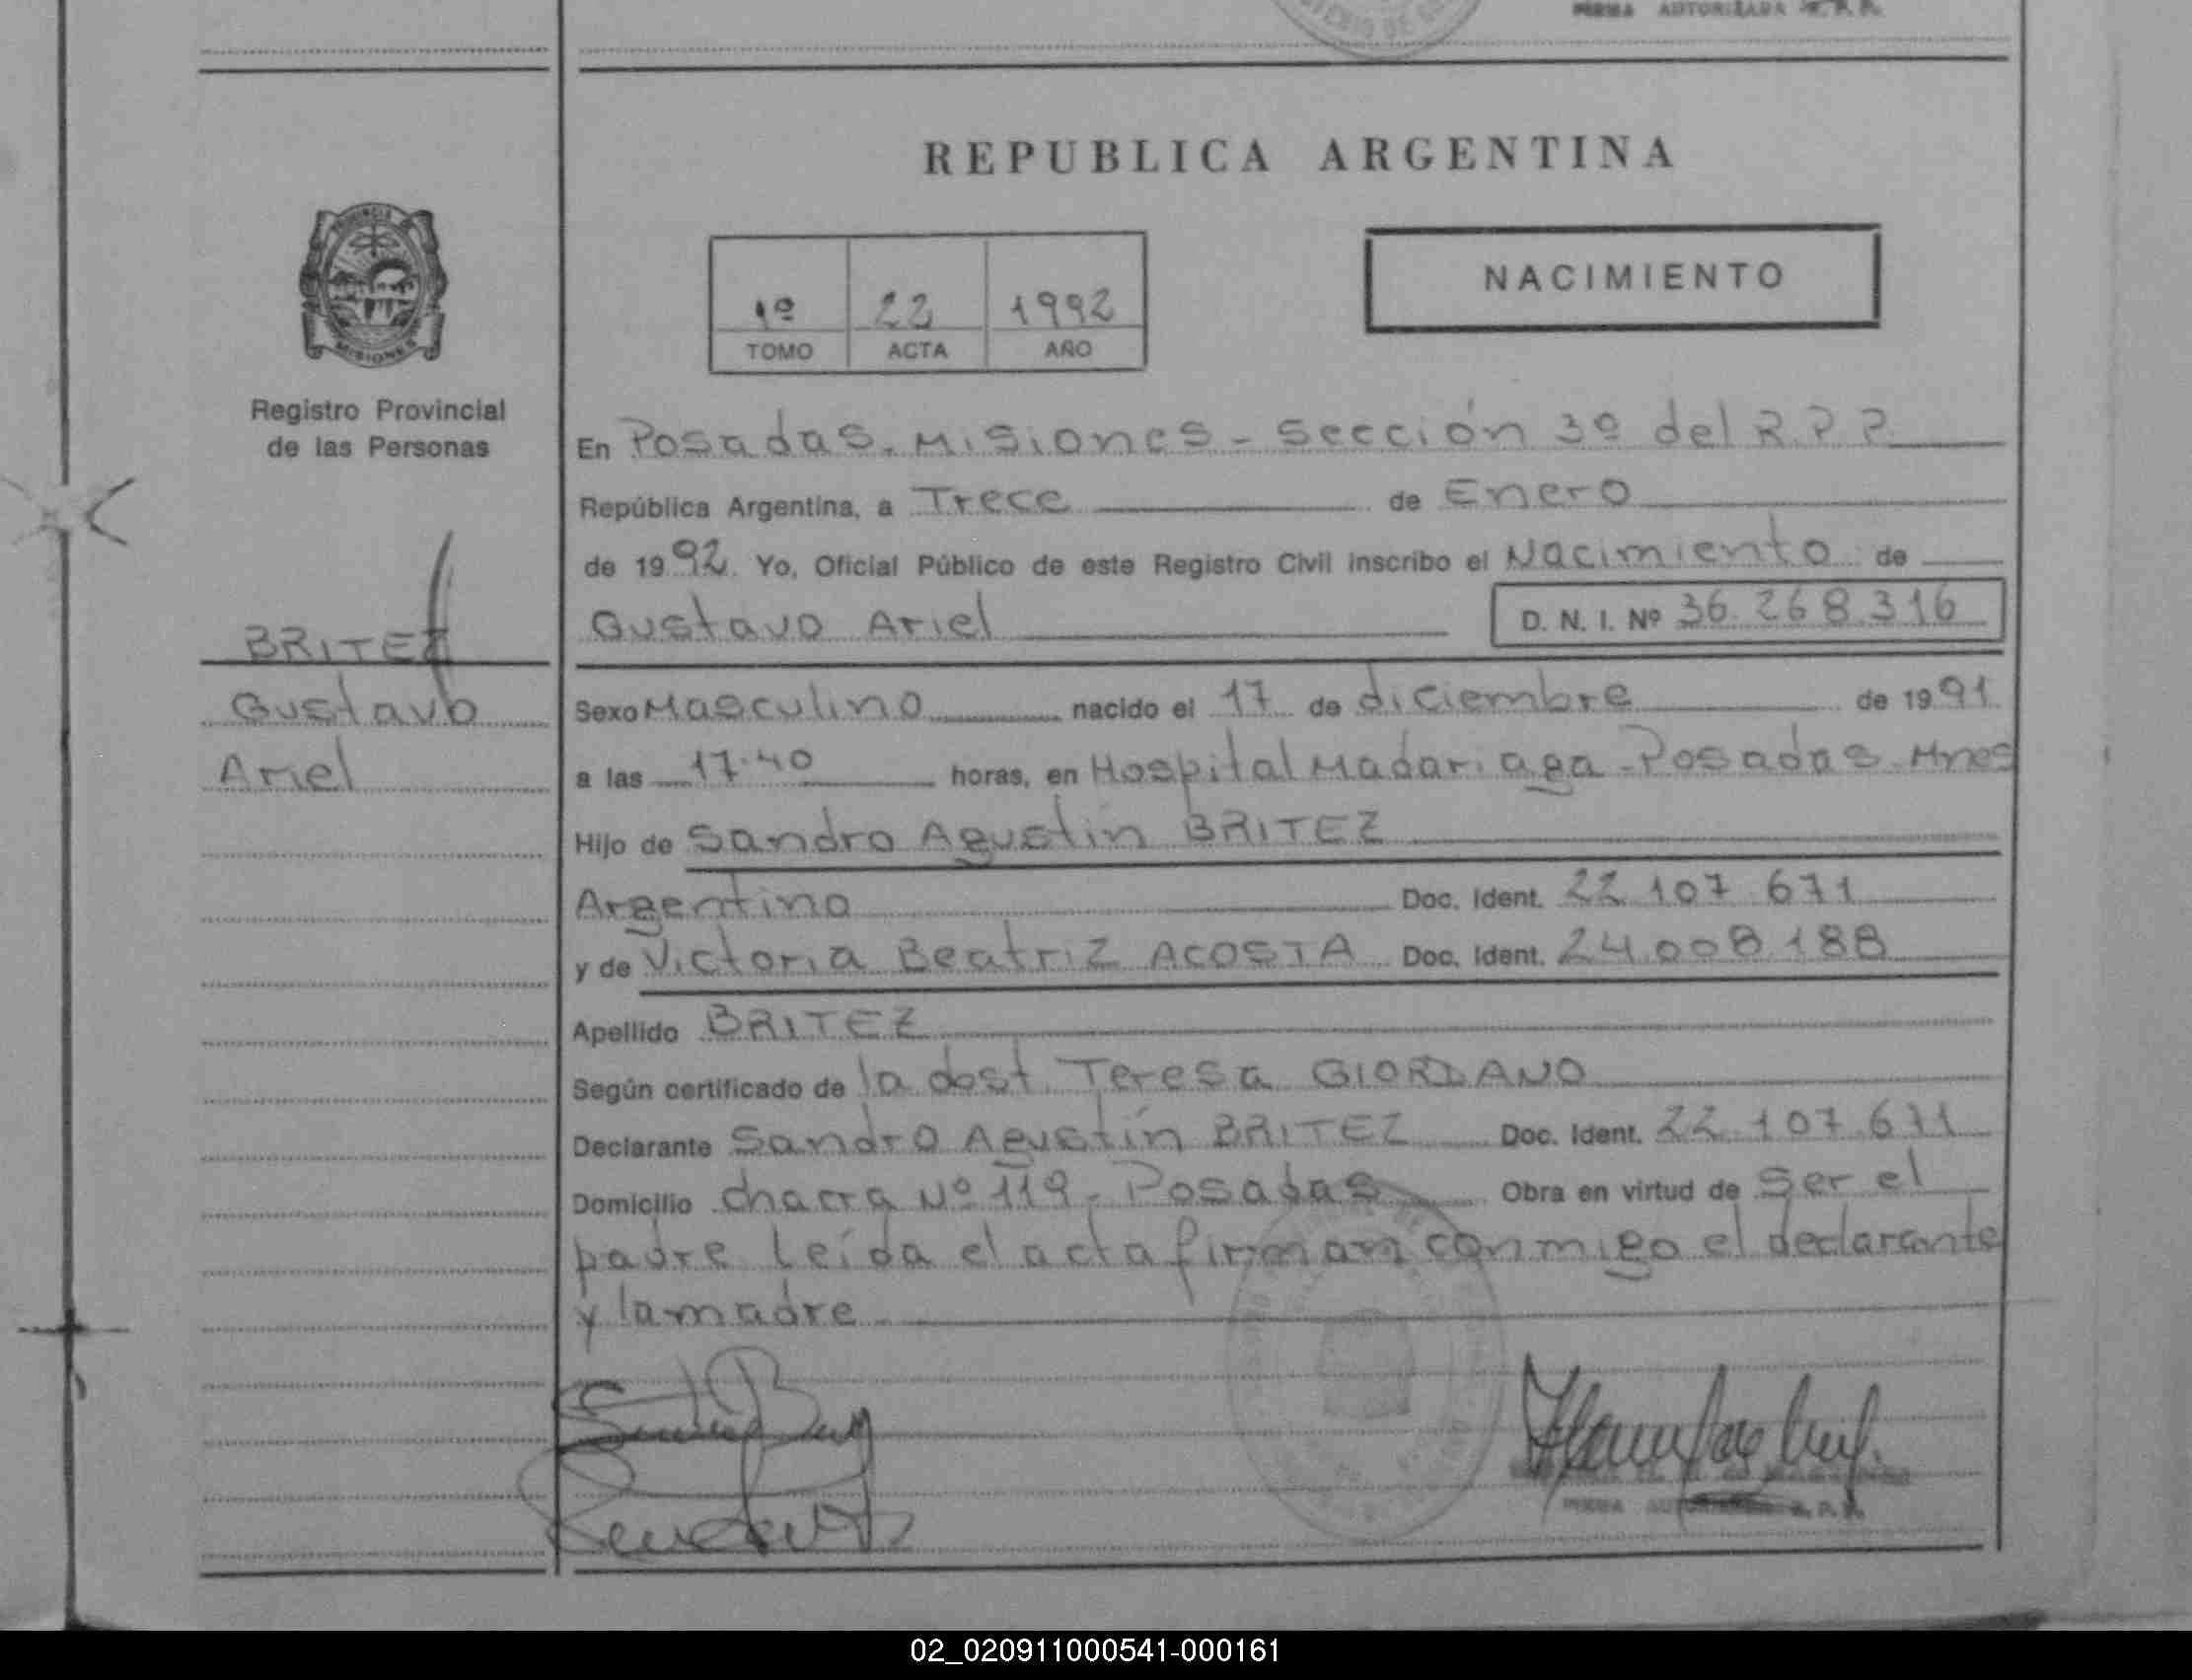 FIRMA AUTORIZADA R. P. P.
REPUBLICA ARGENTINA
PROVINCIA
MISIONES
Registro Provincial
de las Personas
1º 22 1992
TOMO ACTA AÑO
NACIMIENTO
En Posadas. Misiones - Sección 3º del R.P.P.
República Argentina, a Trece de Enero
de 1992. Yo, Oficial Público de este Registro Civil inscribo el Nacimiento de
Gustavo Ariel D. N. I. Nº 36.268.316
BRITEZ
Gustavo
Ariel
Sexo Masculino nacido el 17 de diciembre de 1991
a las 17.40 horas, en Hospital Madariaga - Posadas Mnes
Hijo de Sandro Agustin BRITEZ
Argentino Doc. Ident. 22.107.671
y de Victoria Beatriz ACOSTA Doc. Ident. 24.008.188
Apellido BRITEZ
Según certificado de la obst. Teresa GIORDANO
Declarante Sandro Agustín BRITEZ Doc. Ident. 22.107.671
Domicilio chacra Nº 119 - Posadas Obra en virtud de Ser el
padre Leída el acta firman conmigo el declarante
y la madre
FIRMA AUTORIZADA R. P. P.
02_020911000541-000161